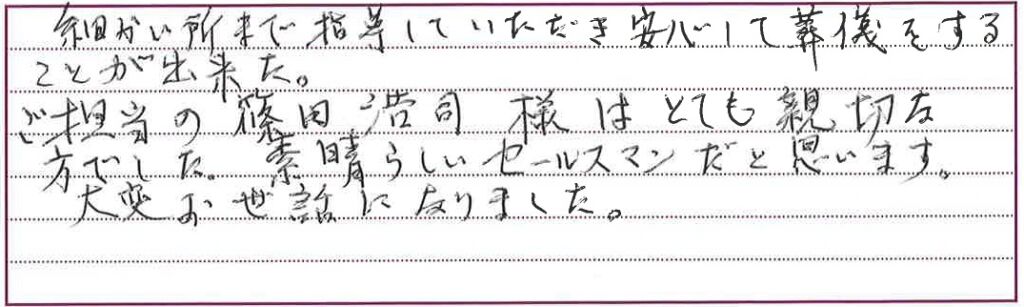 細かい所まで指導していただき安心して葬儀をする
ことが出来た。
ご担当の篠田浩司様はとても親切な
方でした。素晴らしいセールスマンだと思います。
大変お世話になりました。